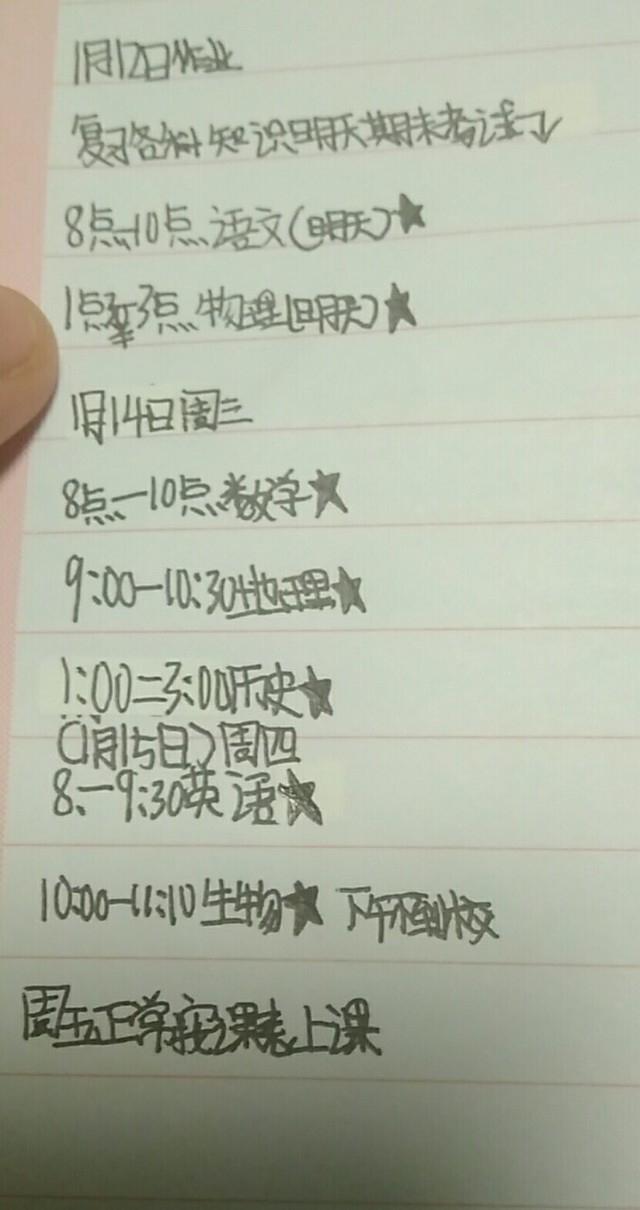 1月12日作业
复习各科知识明天期末考试了
8点-10点语文(明天)★
1点至3点物理(明天)★
1月14日周三
8点一10点数学★
9:00-10:30地理★
1:00二3:00历史★
(1月15日)周四
8:一9:30英语★
10:00-11:10生物★ 下午不到校
周五正常按课表上课